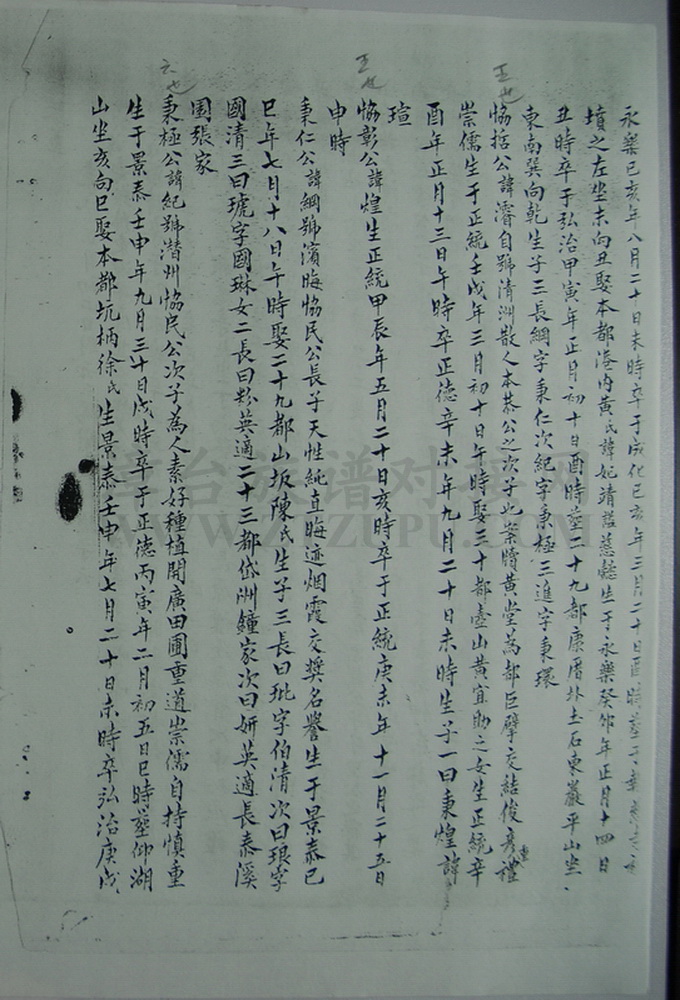 永樂己亥年八月二十日未時卒于成化己亥年三月二十日酉時葬
墳之左坐未向丑娶本都港内黄氏諱妃靖謚慈懿生于永樂癸卯年正月十四日
丑時卒于弘治甲寅年正月初十日酉時塟二十九都康厝林土石東巖平山坐
東南巽向乾生子三長綱字秉仁次紀字秉極三進字秉環
五世
恊括公諱濬自號清洲散人本恭公之次子也案牘黄堂為都巨擘交結俊彦禮重
崇儒生于正統壬戊年三月初十日午時娶三十都臺山黄宜助之女生正統辛
酉年正月十三日午時卒正德辛未年九月二十日未時生子一曰秉煌諱
瑄
五世
恊彰公諱煌生正統甲辰年五月二十日亥時卒于正統庚未年十一月二十五日
申時
秉仁公諱綱號濱晦恊民公長子天性純直晦迹烟霞交奬名譽生于景泰己
巳年七月十八日午時娶二十九都山坂陳氏生子三長曰玭字伯清次曰琅字
國清三曰琥字國琳女二長曰粉英適二十三都岱洲鐘家次曰妍英適長泰溪
園張家
六世
秉極公諱紀號潛州恊民公次子為人素好種植開廣田圃重道崇儒自持慎重
生于景泰壬申年九月三十日戌時卒于正德丙寅年二月初五日巳時塟仰湖
山坐亥向巳娶本都坑柄徐氏生景泰壬申年七月二十日未時卒弘治庚戌
WWW.ZTZUPU.COM